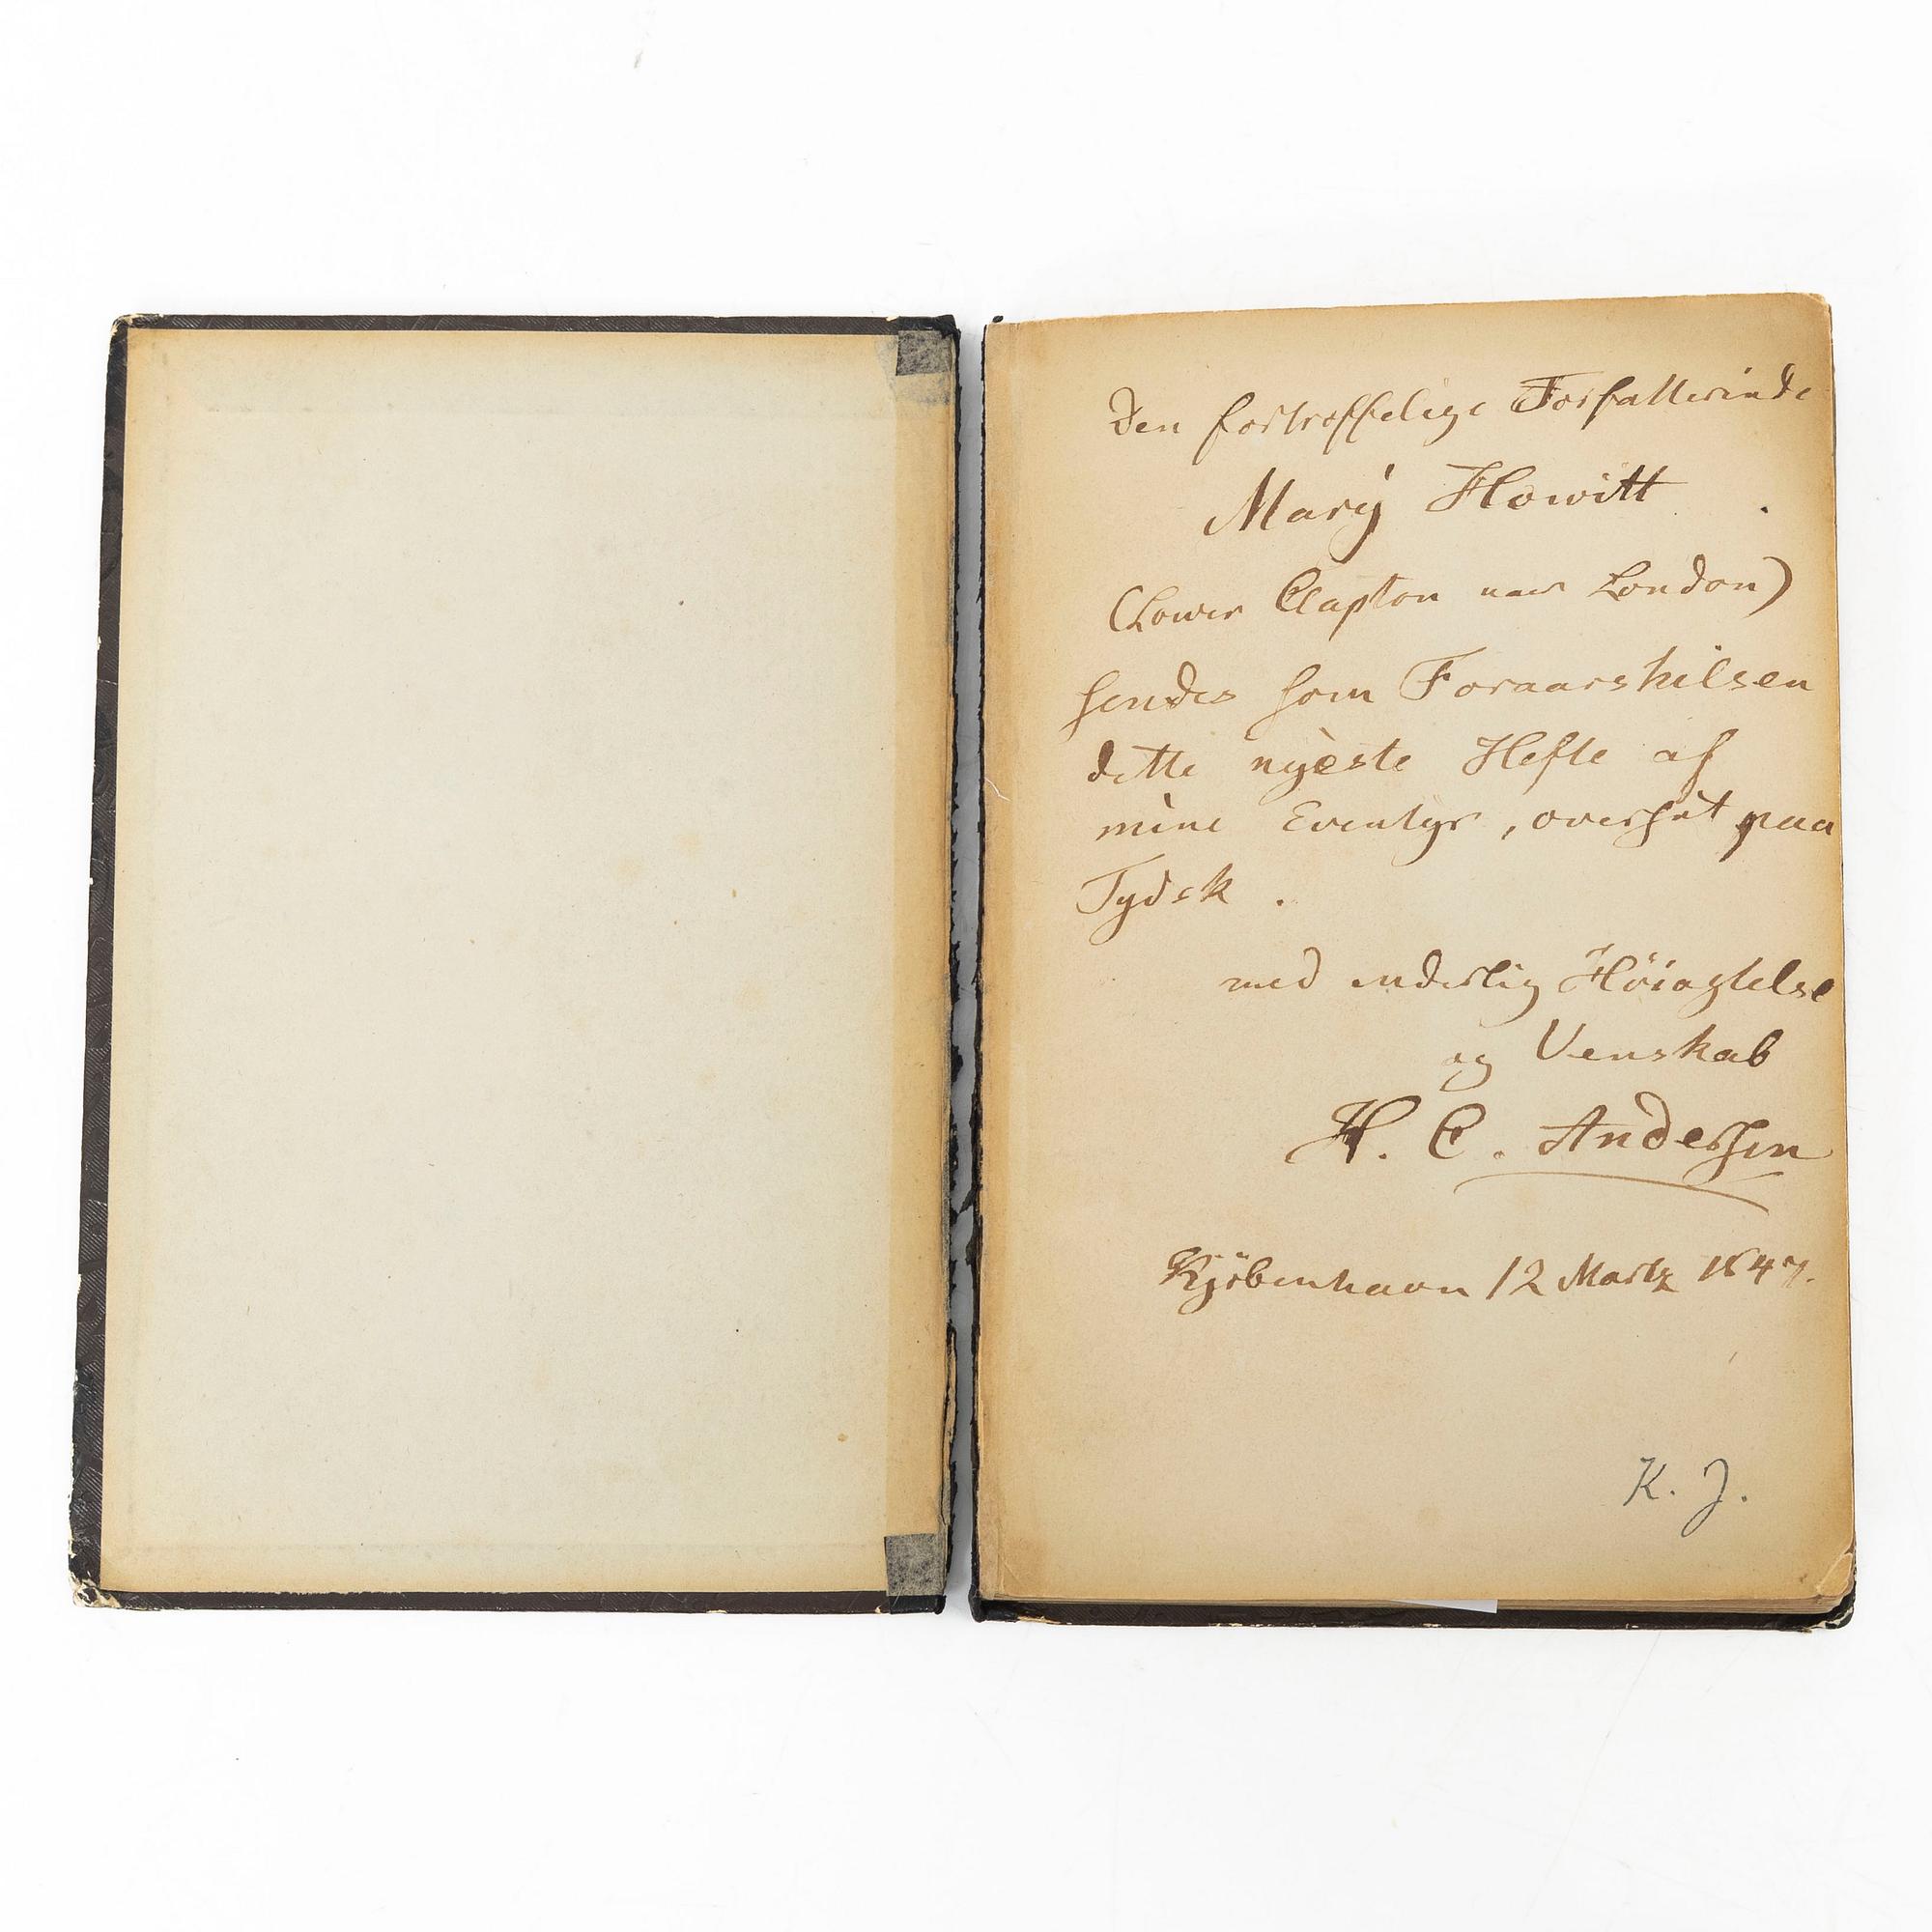 Den fortræffelige Forfatterinde
Mary Howitt
(Lower Clapton near London)
sendes som Foraarshilsen
dette nyeste Hefte af
mine Eventyr, oversat paa
Tydsk.
med inderlig Høiagtelse
og Venskab
H. C. Andersen
Kjöbenhavn 12 Martz 1847.
K. J.